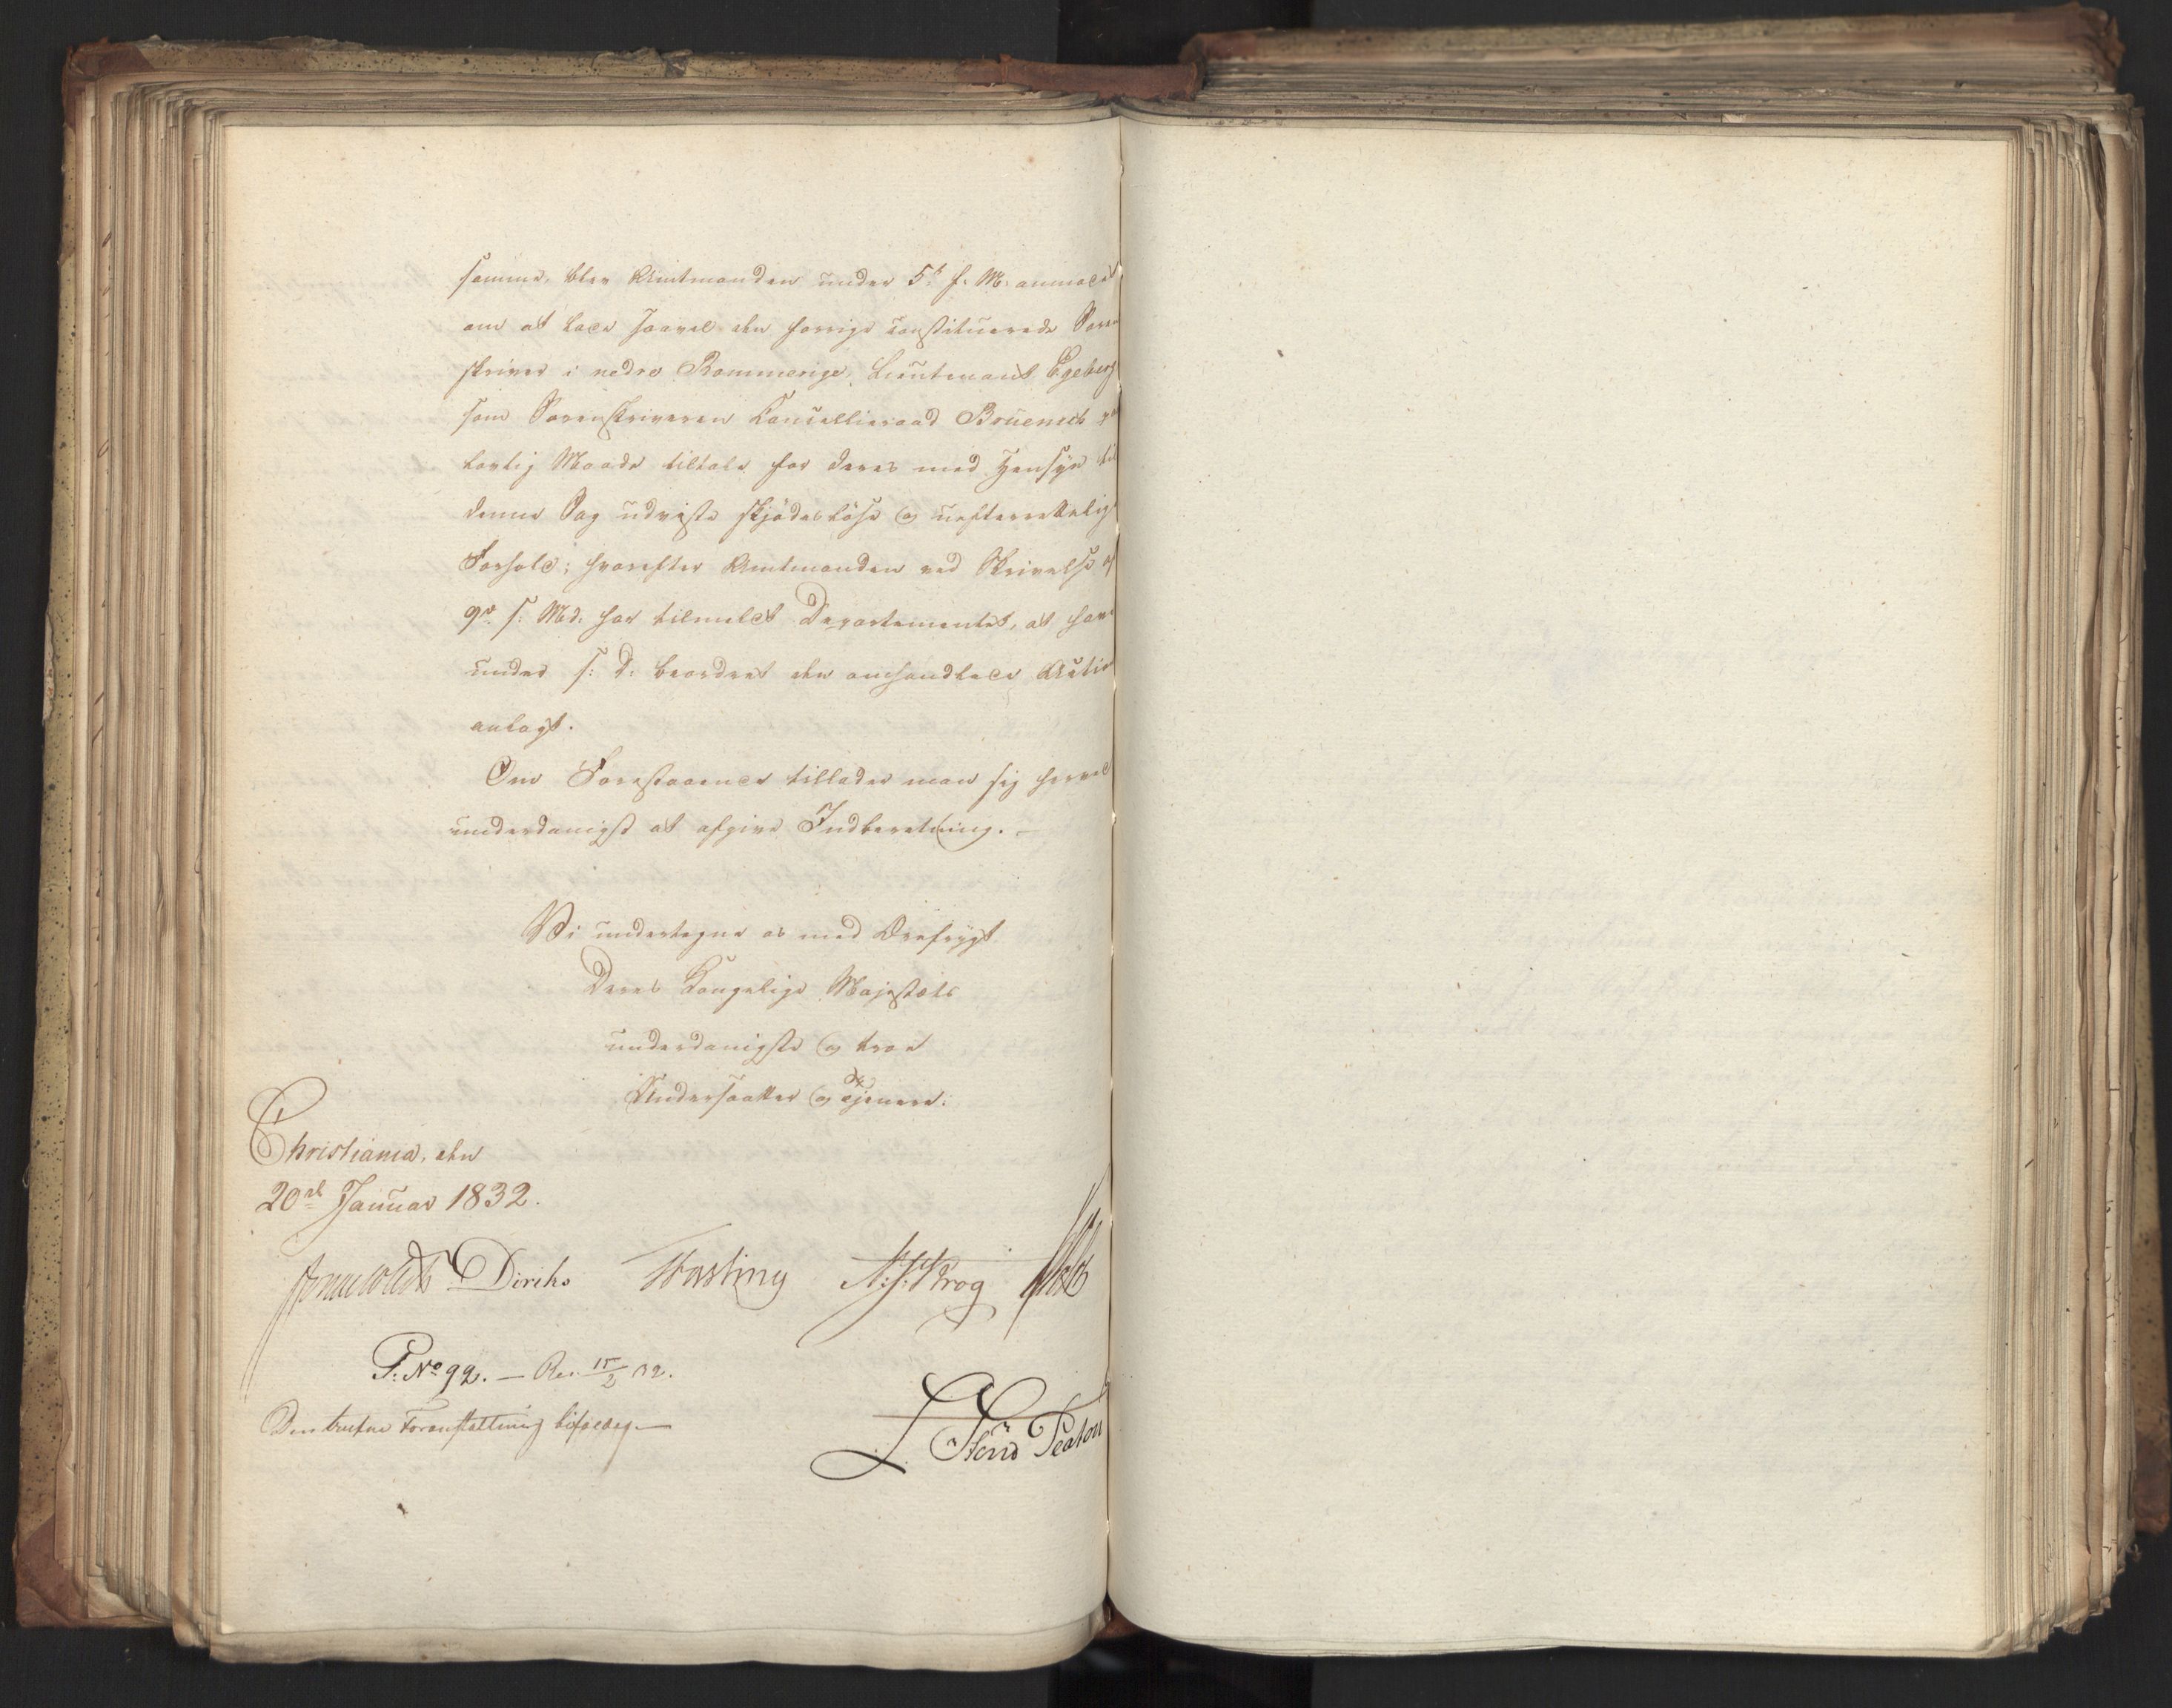 samme, blev Amtmanden under 5te f. M. anmodet
om at lade saavel den forrige constituerede Soren
skriver i nedre Rommerige, Lieutenant Egeberg
som Sorenskriveren Cancellieraad Bruenech paa
lovlig Maade tiltale for deres med Hensyn til
denne Sag udviste skjødesløse og uefterrettelige
Forhold; hvorefter Amtmanden ved Skrivelse af
9de s. Md. har tilmeldt Departementet, at have
under s: D: beordret den omhandlede Action
anlagt.
Om Forestaaende tillader man sig herved
underdanigst at afgive Indberetning. –
Vi undertegne os med Ærefrygt
Deres Kongelige Majestæts
underdanigste og troe
Undersaatter og Tjenere:
Christiania, den
20de Januar 1832.
Diriks Fasting N: J: Krog Holst
P: No 92. – Res. 15/2 32.
Den trufne Foranstaltning bifaldes –